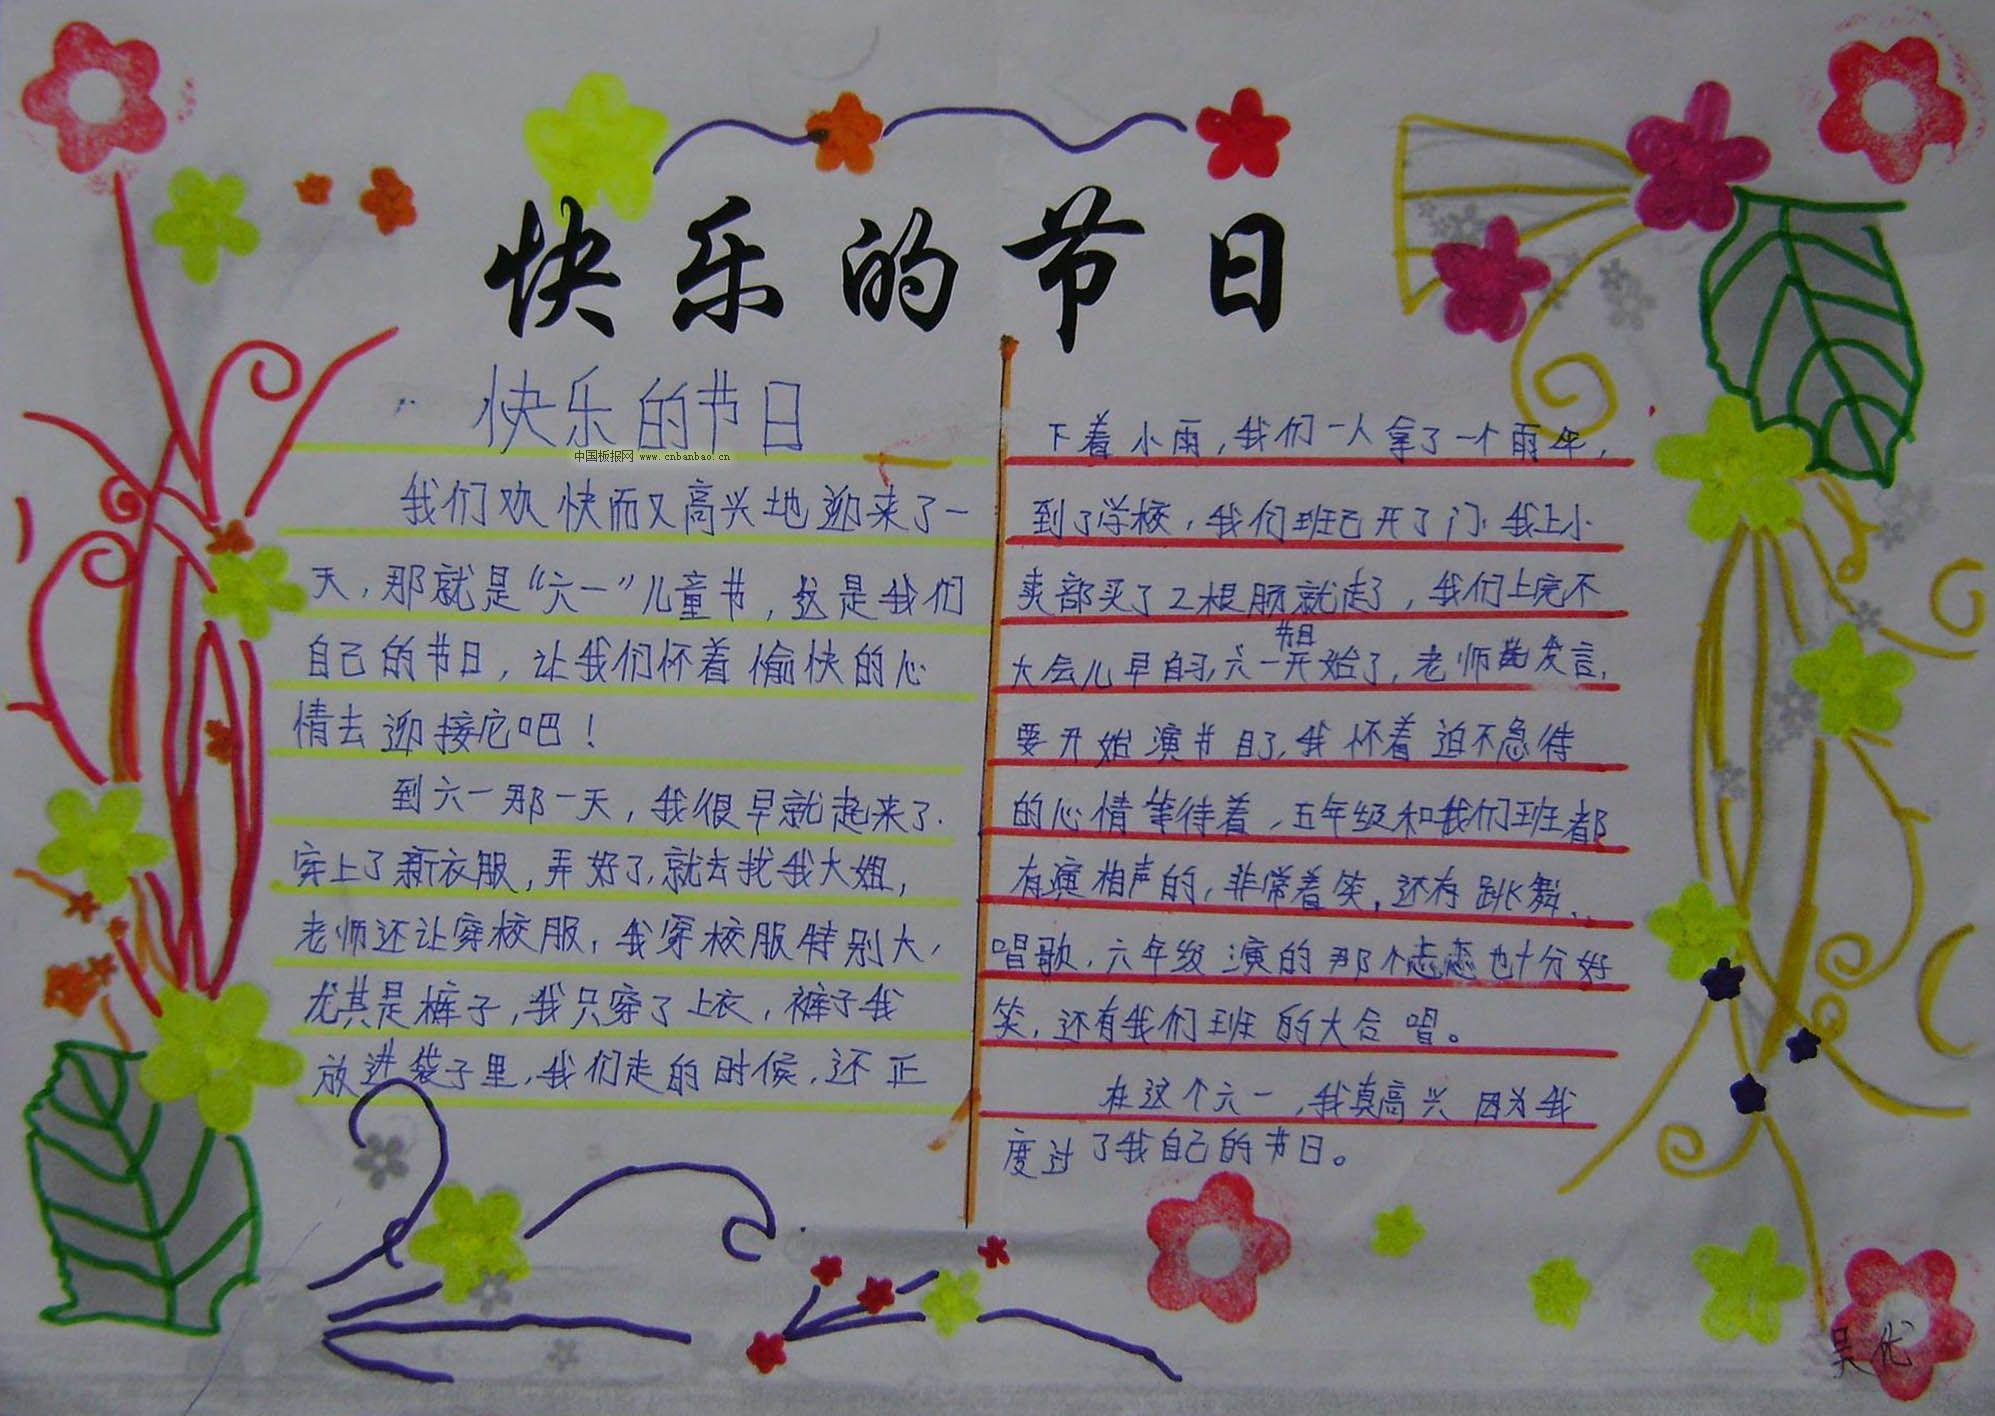 快乐的节日
快乐的节日
中国板报网 www.cnbanbao.cn
我们欢快而又高兴地迎来了一
天，那就是“六一”儿童节，这是我们
自己的节日，让我们怀着愉快的心
情去迎接它吧！
到六一那一天，我很早就起来了.
穿上了新衣服，弄好了，就去找我大姐，
老师还让穿校服，我穿校服特别大，
尤其是裤子，我只穿了上衣，裤子我
放进袋子里，我们走的时候，还正
下着小雨，我们一人拿了一个雨伞，
到了学校，我们班已开了门，我上小
卖部买了2根肠就走了，我们上完不
大会儿早自习，六一节目开始了，老师发言，
要开始演节目了，我怀着迫不急待
的心情等待着，五年级和我们班都
有演相声的，非常着笑，还有跳舞、
唱歌，六年级演的那个也十分好
笑，还有我们班的大合唱。
在这个六一，我真高兴因为我
度过了我自己的节日。
吴优